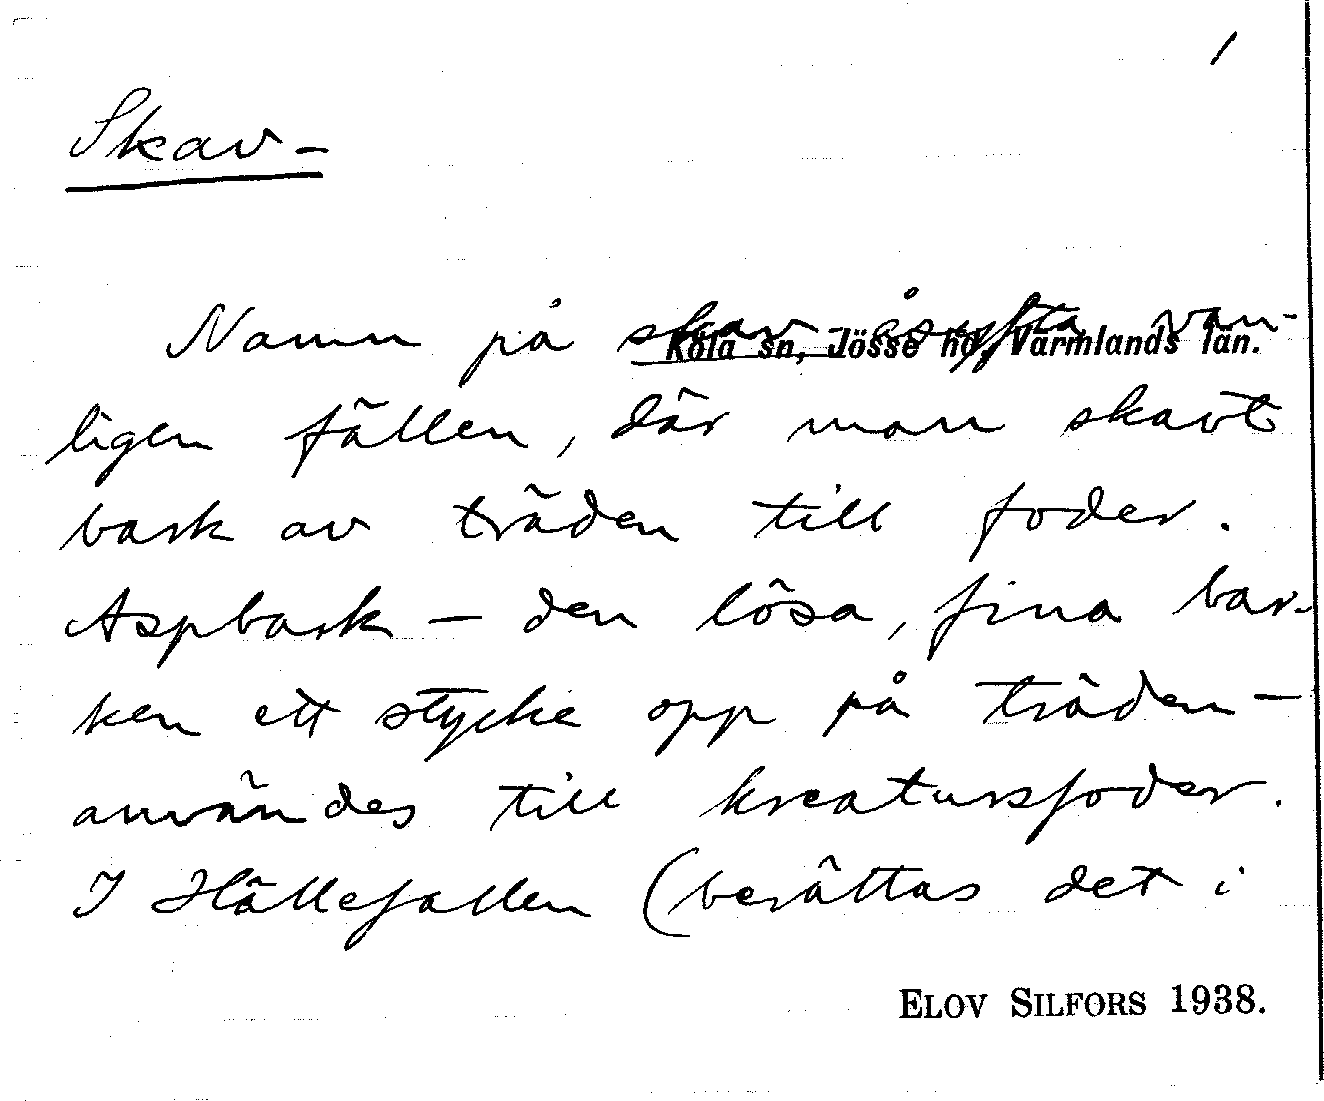 1
Skav-
Namn på skav åsyfta van-
Köla sn, Jösse hd, Värmlands län.
ligen fällen, där man skavt
bark av träden till foder.
Aspbark – den lösa, fina bar-
ken ett stycke opp på träden –
användes till kreatursfoder.
I Hällefallen (berättas det i
ELOV SILFORS 1938.